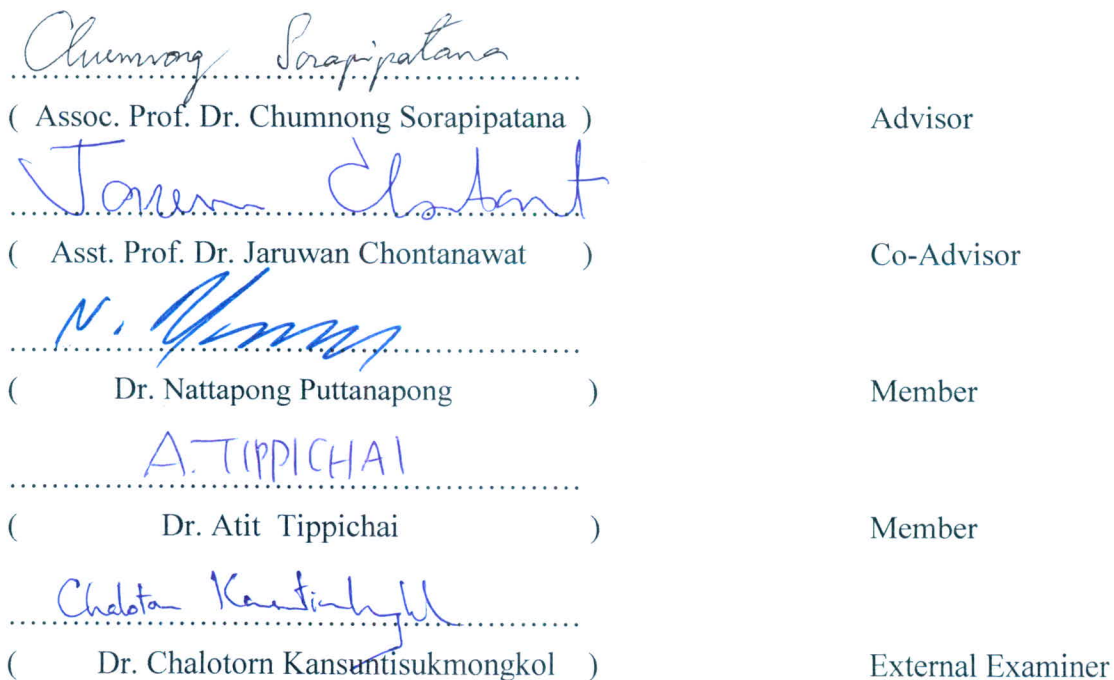 Chumnong Sorapipatana
( Assoc. Prof. Dr. Chumnong Sorapipatana ) Advisor
( Asst. Prof. Dr. Jaruwan Chontanawat ) Co-Advisor
N.
( Dr. Nattapong Puttanapong ) Member
A. TIPPICHAI
( Dr. Atit Tippichai ) Member
( Dr. Chalotorn Kansuntisukmongkol ) External Examiner